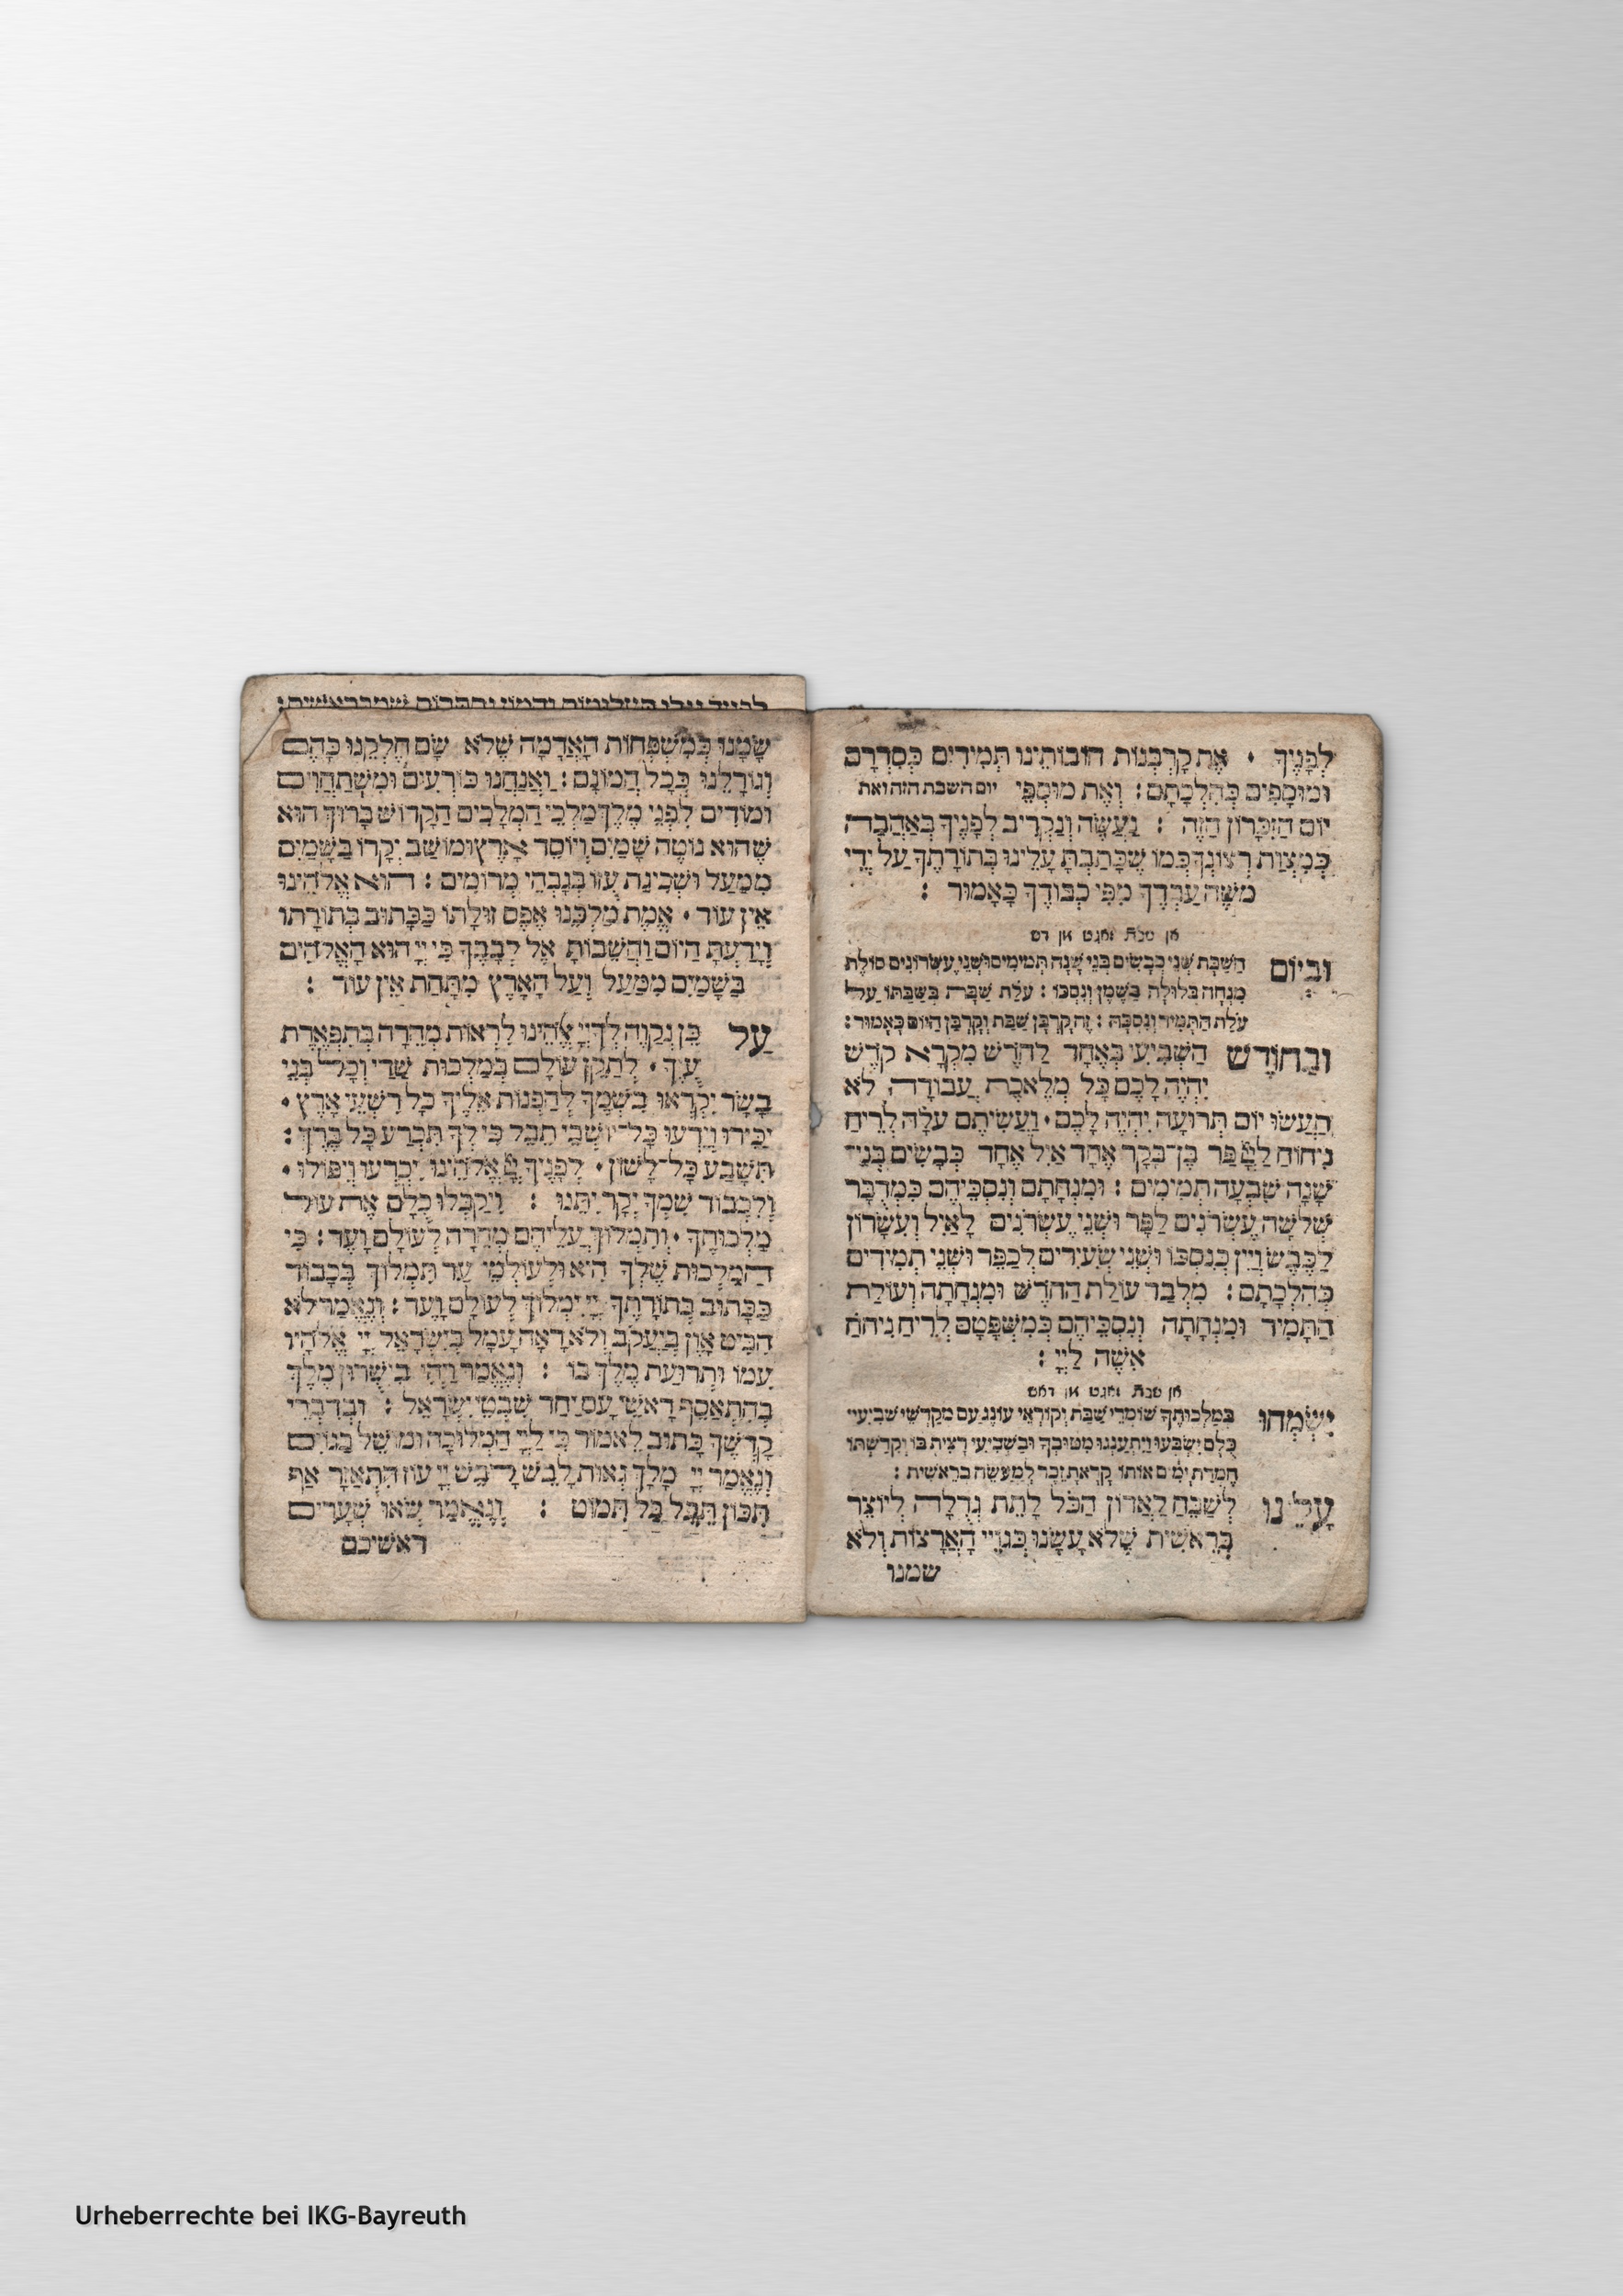 לְפָנֶיךָ · אֶת קָרְבְּנוֹת חוֹבוֹתֵינוּ תְּמִידִים כְּסִדְרָם
וּמוּסָפִים כְּהִלְכָתָם : וְאֶת מוּסְפֵי יום השבת הזה ואת
יוֹם הַזִּכָּרוֹן הַזֶּה : נַעֲשֶׂה וְנַקְרִיב לְפָנֶיךָ בְּאַהֲבָה
כְּמִצְוַת רְצוֹנְךָ כְּמוֹ שֶׁכָּתַבְתָּ עָלֵינוּ בְּתוֹרָתֶךָ עַל יְדֵי
מֹשֶׁה עַבְדֶּךָ מִפִּי כְבוֹדֶךָ כָּאָמוּר :
אן שבת זאגט אן דש
וּבְיוֹם הַשַּׁבָּת שְׁנֵי כְבָשִׂים בְּנֵי שָׁנָה תְּמִימִים וּשְׁנֵי עֶשְׂרוֹנִים סוֹלֶת
מִנְחָה בְּלוּלָה בַשֶּׁמֶן וְנִסְכּוֹ : עֹלַת שַׁבָּת בְּשַׁבַּתּוֹ עַל
עֹלַת הַתָּמִיד וְנִסְכָּהּ : זֶה קָרְבַּן שַׁבָּת וְקָרְבַּן הַיּוֹם כָּאָמוּר :
וּבַחוֹדֶשׁ הַשְּׁבִיעִי בְּאֶחָד לַחֹדֶשׁ מִקְרָא קוֹדֶשׁ
יִהְיֶה לָכֶם כָּל מְלֶאכֶת עֲבוֹדָה לֹא
תַעֲשׂוּ יוֹם תְּרוּעָה יִהְיֶה לָכֶם · וַעֲשִׂיתֶם עֹלָה לְרֵיחַ
נִיחוֹחַ לַיְיָ פַּר בֶּן־בָּקָר אֶחָד אַיִל אֶחָד כְּבָשִׂים בְּנֵי־
שָׁנָה שִׁבְעָה תְמִימִים : וּמִנְחָתָם וְנִסְכֵּיהֶם כִּמְדֻבָּר
שְׁלֹשָׁה עֶשְׂרֹנִים לַפָּר וּשְׁנֵי עֶשְׂרֹנִים לָאַיִל וְעִשָּׂרוֹן
לַכֶּבֶשׂ וְיַיִן כְּנִסְכּוֹ וּשְׁנֵי שְׂעִירִים לְכַפֵּר וּשְׁנֵי תְמִידִים
כְּהִלְכָתָם : מִלְּבַד עוֹלַת הַחֹדֶשׁ וּמִנְחָתָהּ וְעוֹלַת
הַתָּמִיד וּמִנְחָתָהּ וְנִסְכֵּיהֶם כְּמִשְׁפָּטָם לְרֵיחַ נִיחֹחַ
אִשֶּׁה לַיְיָ :
אן שבת זאגט אן דאש
יִשְׂמְחוּ בְּמַלְכוּתְךָ שׁוֹמְרֵי שַׁבָּת וְקוֹרְאֵי עוֹנֶג עַם מְקַדְּשֵׁי שְׁבִיעִי
כֻּלָּם יִשְׂבְּעוּ וְיִתְעַנְּגוּ מִטּוּבֶךָ וּבַשְּׁבִיעִי רָצִיתָ בּוֹ וְקִדַּשְׁתּוֹ
חֶמְדַּת יָמִים אוֹתוֹ קָרָאתָ זֵכֶר לְמַעֲשֵׂה בְרֵאשִׁית :
עָלֵינוּ לְשַׁבֵּחַ לַאֲדוֹן הַכֹּל לָתֵת גְּדֻלָּה לְיוֹצֵר
בְּרֵאשִׁית שֶׁלֹּא עָשָׂנוּ כְּגוֹיֵי הָאֲרָצוֹת וְלֹא
שמנו
שָׂמָנוּ כְּמִשְׁפְּחוֹת הָאֲדָמָה שֶׁלֹּא שָׂם חֶלְקֵנוּ כָּהֶם
וְגוֹרָלֵנוּ כְּכָל הֲמוֹנָם : וַאֲנַחְנוּ כּוֹרְעִים וּמִשְׁתַּחֲוִים
וּמוֹדִים לִפְנֵי מֶלֶךְ מַלְכֵי הַמְּלָכִים הַקָּדוֹשׁ בָּרוּךְ הוּא
שֶׁהוּא נוֹטֶה שָׁמַיִם וְיוֹסֵד אָרֶץ וּמוֹשַׁב יְקָרוֹ בַּשָּׁמַיִם
מִמַּעַל וּשְׁכִינַת עֻזּוֹ בְּגָבְהֵי מְרוֹמִים : הוּא אֱלֹהֵינוּ
אֵין עוֹד · אֱמֶת מַלְכֵּנוּ אֶפֶס זוּלָתוֹ כַּכָּתוּב בְּתוֹרָתוֹ
וְיָדַעְתָּ הַיּוֹם וַהֲשֵׁבוֹתָ אֶל לְבָבֶךָ כִּי יְיָ הוּא הָאֱלֹהִים
בַּשָּׁמַיִם מִמַּעַל וְעַל הָאָרֶץ מִתָּחַת אֵין עוֹד :
עַל כֵּן נְקַוֶּה לְּךָ יְיָ אֱלֹהֵינוּ לִרְאוֹת מְהֵרָה בְּתִפְאֶרֶת
עֻזֶּךָ · לְתַקֵּן עוֹלָם בְּמַלְכוּת שַׁדַּי וְכָל בְּנֵי
בָשָׂר יִקְרְאוּ בִשְׁמֶךָ לְהַפְנוֹת אֵלֶיךָ כָּל רִשְׁעֵי אָרֶץ ·
יַכִּירוּ וְיֵדְעוּ כָּל־יוֹשְׁבֵי תֵבֵל כִּי לְךָ תִּכְרַע כָּל בֶּרֶךְ :
תִּשָּׁבַע כָּל־לָשׁוֹן · לְפָנֶיךָ יְיָ אֱלֹהֵינוּ יִכְרְעוּ וְיִפּוֹלוּ ·
וְלִכְבוֹד שִׁמְךָ יְקָר יִתֵּנוּ : וִיקַבְּלוּ כֻלָּם אֶת עוֹל
מַלְכוּתֶךָ · וְתִמְלוֹךְ עֲלֵיהֶם מְהֵרָה לְעוֹלָם וָעֶד : כִּי
הַמַּלְכוּת שֶׁלְּךָ הִיא וּלְעוֹלְמֵי עַד תִּמְלוֹךְ בְּכָבוֹד
כַּכָּתוּב בְּתוֹרָתֶךָ יְיָ יִמְלוֹךְ לְעוֹלָם וָעֶד : וְנֶאֱמַר לֹא
הִבִּיט אָוֶן בְּיַעֲקֹב וְלֹא רָאָה עָמָל בְּיִשְׂרָאֵל יְיָ אֱלֹהָיו
עִמּוֹ וּתְרוּעַת מֶלֶךְ בּוֹ : וְנֶאֱמַר וַיְהִי בִישֻׁרוּן מֶלֶךְ
בְּהִתְאַסֵּף רָאשֵׁי עָם יַחַד שִׁבְטֵי יִשְׂרָאֵל : וּבְדִבְרֵי
קָדְשְׁךָ כָּתוּב לֵאמוֹר כִּי לַיְיָ הַמְּלוּכָה וּמוֹשֵׁל בַּגּוֹיִם
וְנֶאֱמַר יְיָ מָלָךְ גֵּאוּת לָבֵשׁ לָבֵשׁ יְיָ עוֹז הִתְאַזָּר אַף
תִּכּוֹן תֵּבֵל בַּל תִּמּוֹט : וְנֶאֱמַר שְׂאוּ שְׁעָרִים
ראשיכם
Urheberrechte bei IKG-Bayreuth